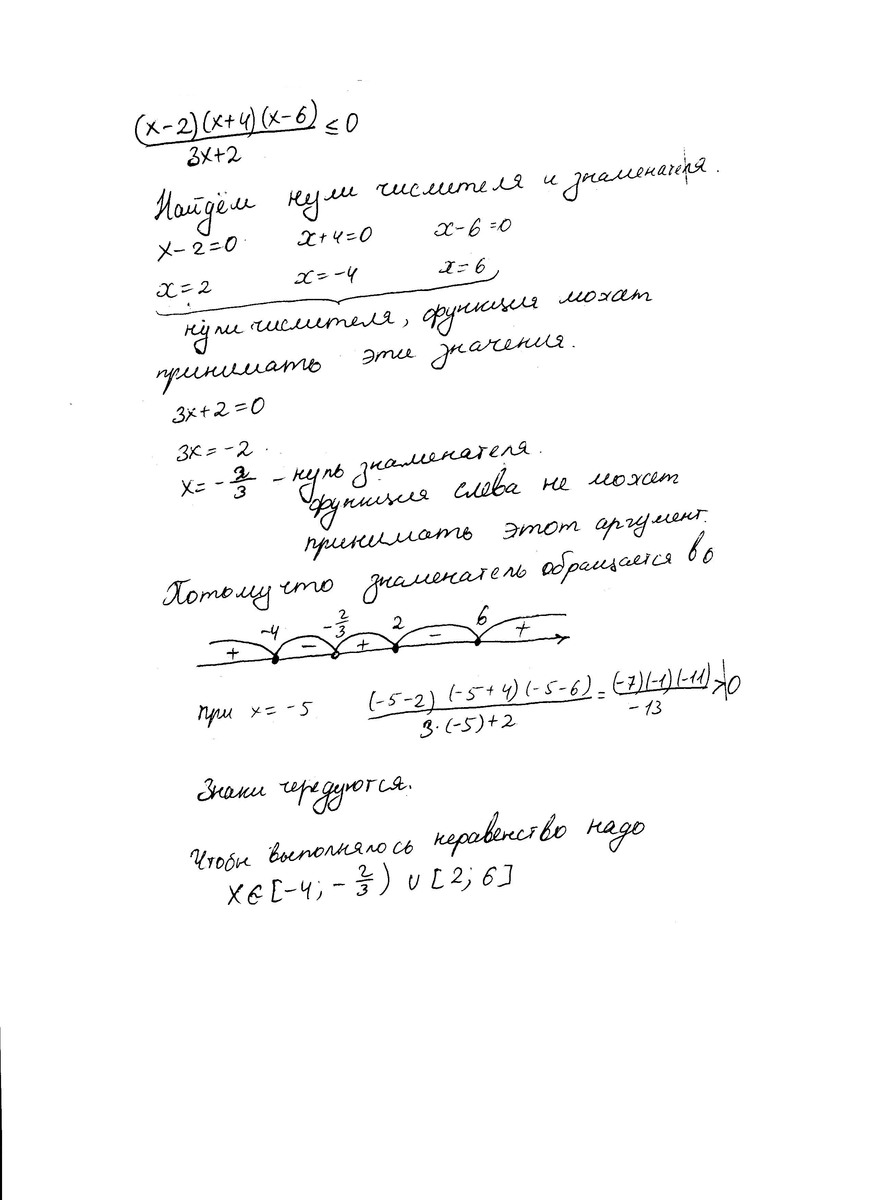 (x-2)(x+4)(x-6)/(3x+2) ≤ 0
Найдём нули числителя и знаменателя.
x-2=0 x+4=0 x-6=0
x=2 x=-4 x=6
нули числителя, функция может
принимать эти значения.
3x+2=0
3x=-2
x=-2/3 - нуль знаменателя.
функция слева не может
принимать этот аргумент.
Потому что знаменатель обращается в 0
-4 -2/3 2 6
+ - + - +
при x=-5 (-5-2)(-5+4)(-5-6)/(3·(-5)+2) = (-7)(-1)(-11)/-13 > 0
Знаки чередуются.
Чтобы выполнялось неравенство надо
x∈[-4;-2/3)∪[2;6]